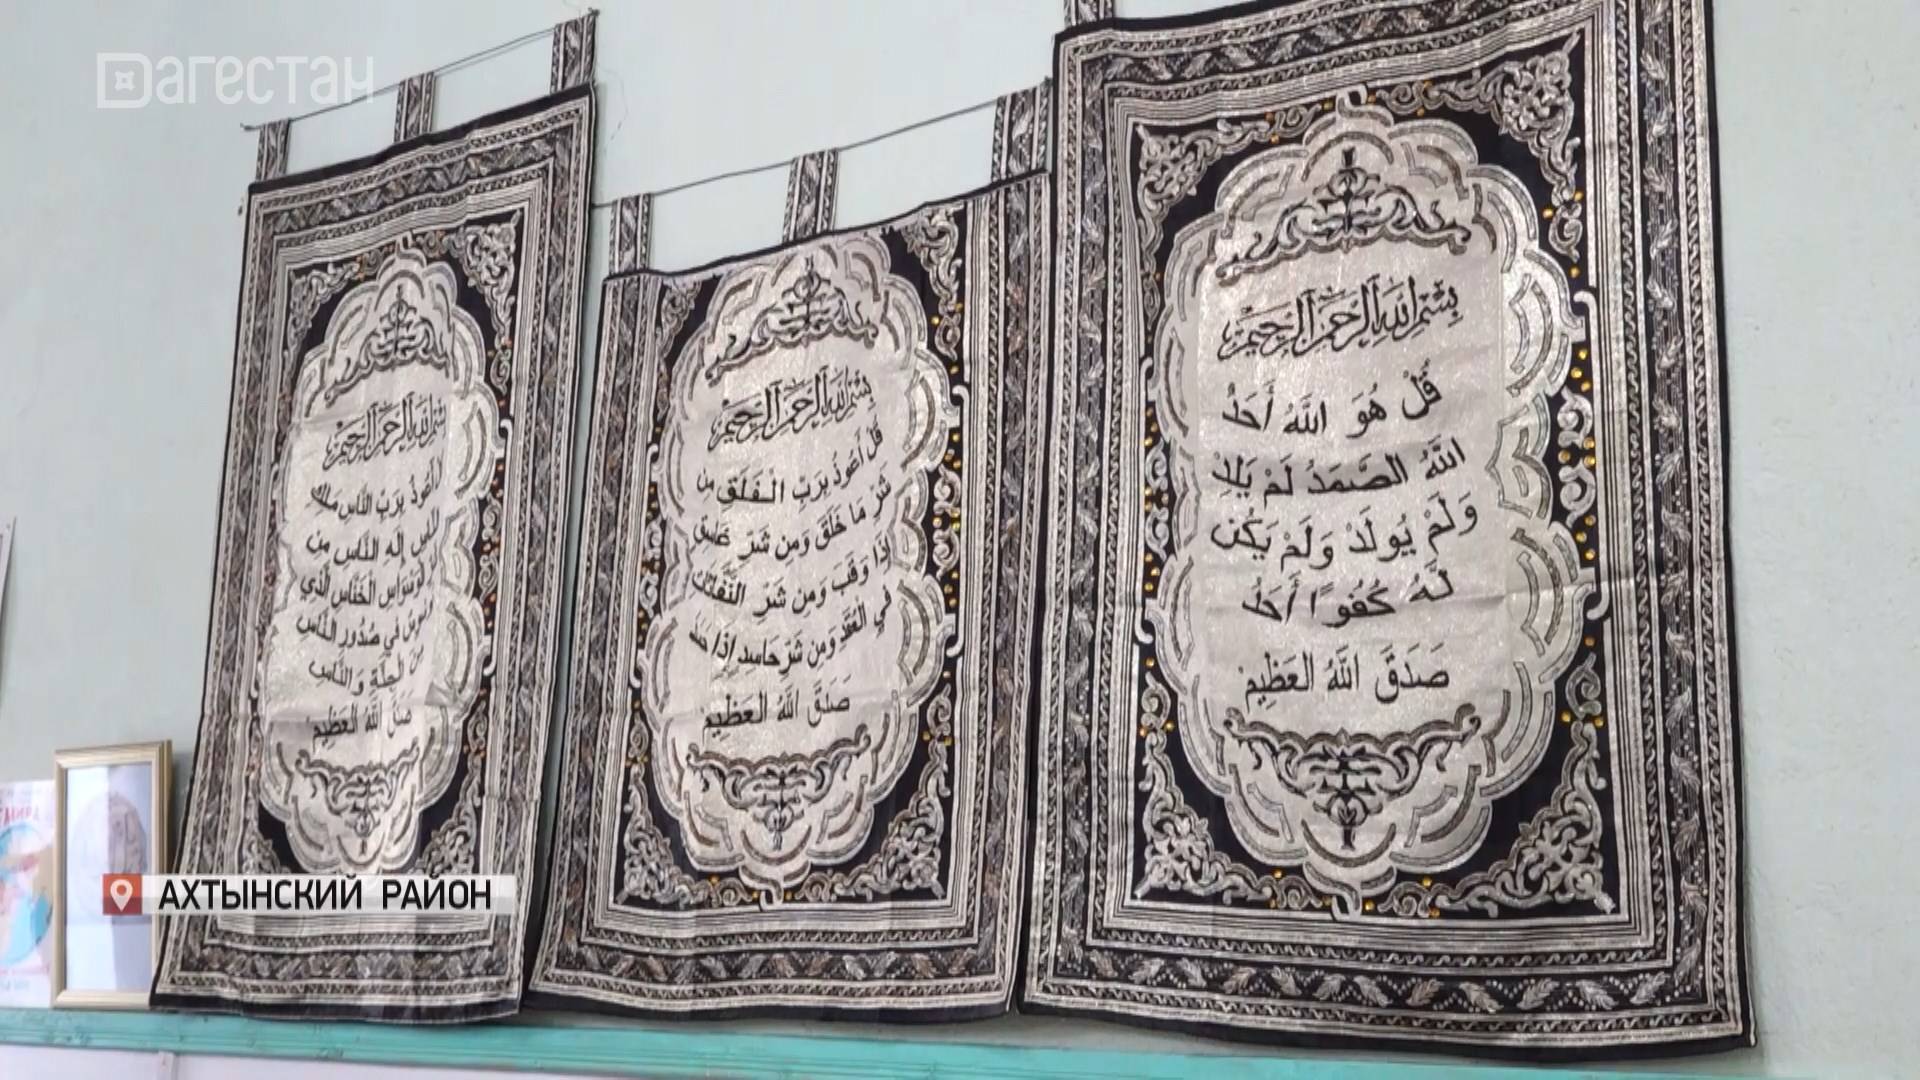 Дагестан
بِسْمِ اللهِ الرَّحْمَنِ الرَّحِيمِ
أَعُوذُ بِرَبِّ النَّاسِ مَلِكِ
النَّاسِ إِلَهِ النَّاسِ مِن
الْوَسْوَاسِ الْخَنَّاسِ الَّذِي
فِي صُدُورِ النَّاسِ
مِنَ الْجِنَّةِ وَالنَّاسِ
صَدَقَ اللَّهُ الْعَظِيمُ
بِسْمِ اللهِ الرَّحْمَنِ الرَّحِيمِ
قُلْ أَعُوذُ بِرَبِّ الْفَلَقِ مِن
شَرِّ مَا خَلَقَ وَمِن شَرِّ غَاسِقٍ
إِذَا وَقَبَ وَمِن شَرِّ النَّفَّاثَاتِ
فِي الْعُقَدِ وَمِن شَرِّ حَاسِدٍ إِذَا حَسَدَ
صَدَقَ اللَّهُ الْعَظِيمُ
بِسْمِ اللهِ الرَّحْمَنِ الرَّحِيمِ
قُلْ هُوَ اللَّهُ أَحَدٌ
اللَّهُ الصَّمَدُ لَمْ يَلِدْ
وَلَمْ يُولَدْ وَلَمْ يَكُن
لَهُ كُفُوًا أَحَدٌ
صَدَقَ اللَّهُ الْعَظِيمْ
АХТЫНСКИЙ РАЙОН